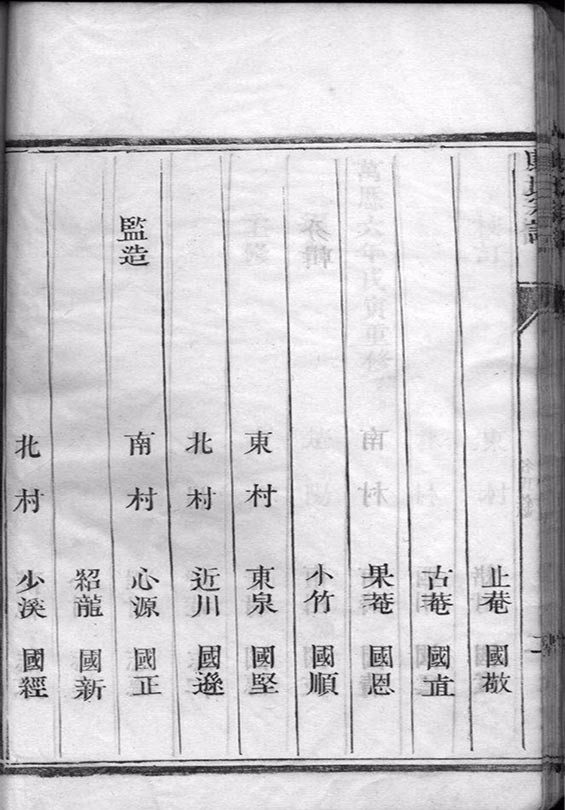 氏宗譜
止菴 國敬
古菴 國直
南村 果菴 國恩
小竹 國順
東村 東泉 國堅
北村 近川 國遜
監造 南村 心源 國正
紹龍 國新
北村 少溪 國經